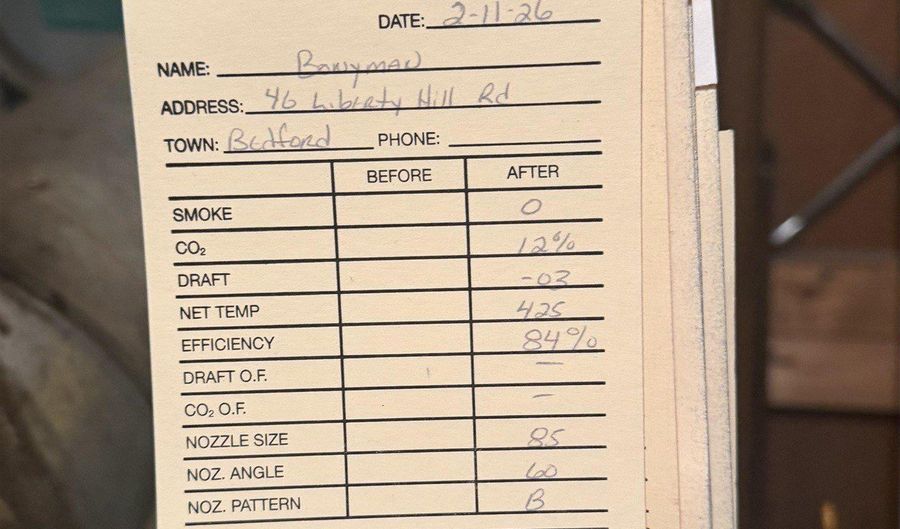 DATE: 2-11-26
NAME: Bonyman
ADDRESS: 46 Liberty Hill Rd
TOWN: Bedford PHONE:
BEFORE AFTER
SMOKE 0
CO₂ 12%
DRAFT -03
NET TEMP 425
EFFICIENCY 84%
DRAFT O.F. —
CO₂ O.F. —
NOZZLE SIZE 85
NOZ. ANGLE 60
NOZ. PATTERN B